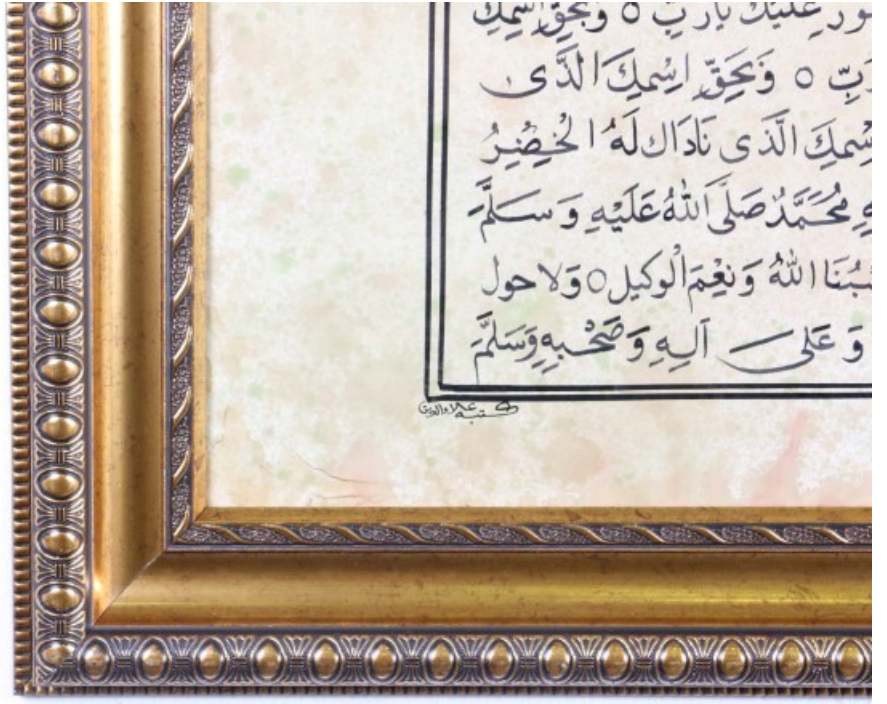 عليك يارب ٥ وبحق اسمك
رَبِّ ٥ وَبِحَقِّ اسْمِكَ الَّذَى
اسْمِكَ الَّذى نَادَاكَ لَهُ الْخِضْرُ
مُحَمَّدْ صَلَّى اَللهُ عَلَيْهِ وَسَلَّمَ
حَسْبُنَا اللهُ وَنِعْمَ الْوكيل ٥ وَلا حول
وَ عَلى آلِهِ وَصَحْبِهِ وَسَلَّمَ
كتبه علاءالدين